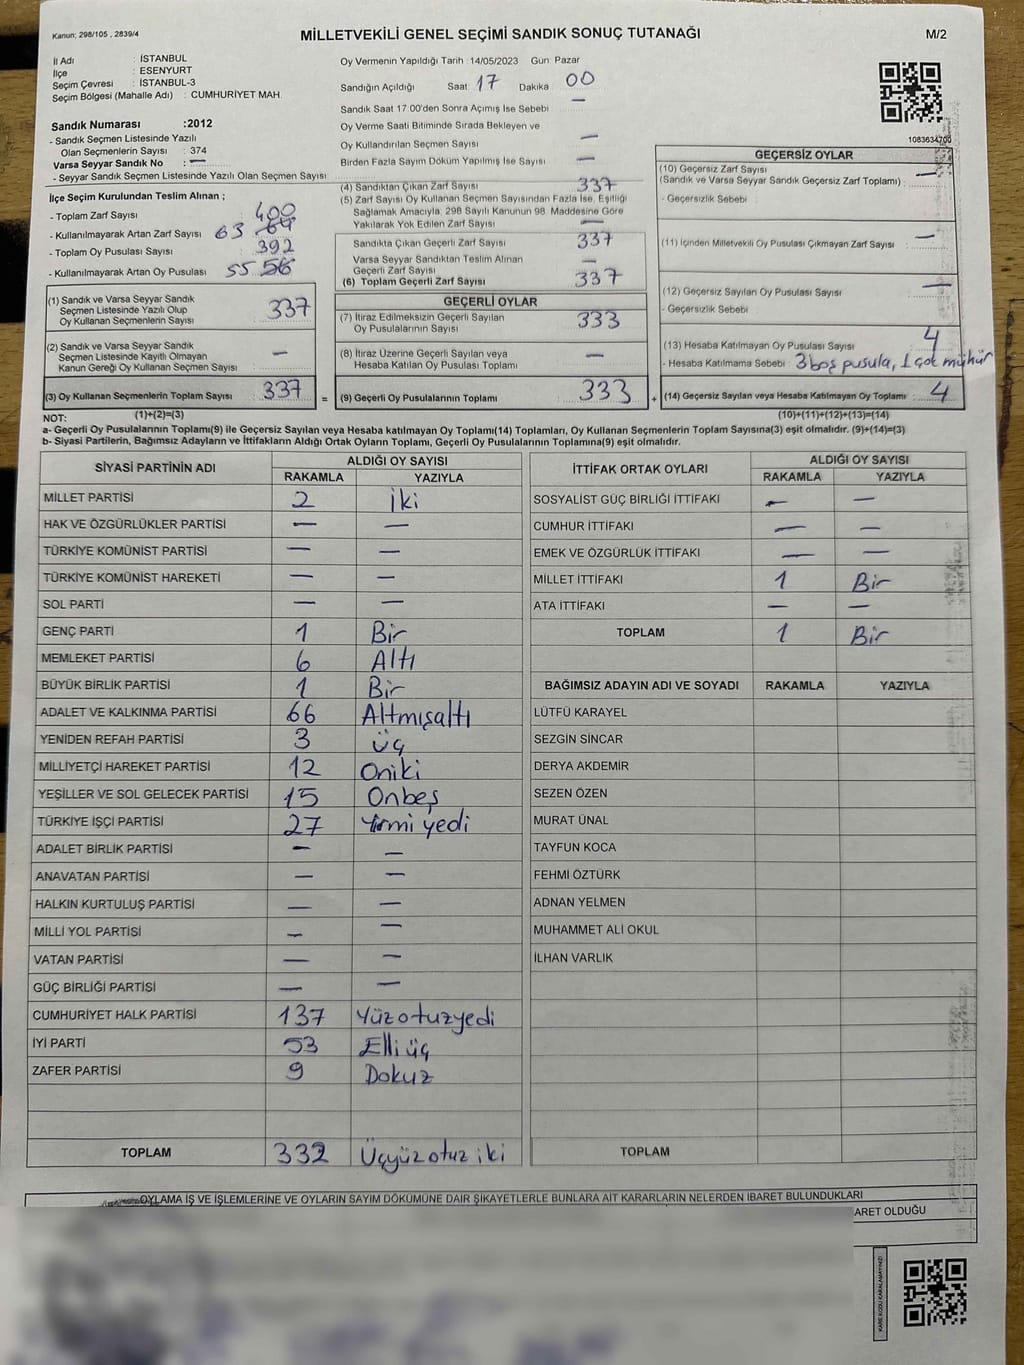 Kanun; 298/105 , 2839/4
MİLLETVEKİLİ GENEL SEÇİMİ SANDIK SONUÇ TUTANAĞI
M/2
İl Adı : İSTANBUL
İlçe : ESENYURT
Seçim Çevresi : İSTANBUL-3
Seçim Bölgesi (Mahalle Adı) : CUMHURİYET MAH.
Sandık Numarası :2012
- Sandık Seçmen Listesinde Yazılı
Olan Seçmenlerin Sayısı : 374
Varsa Seyyar Sandık No : —
- Seyyar Sandık Seçmen Listesinde Yazılı Olan Seçmen Sayısı :
Oy Vermenin Yapıldığı Tarih : 14/05/2023 Gün Pazar
Sandığın Açıldığı Saat : 17 Dakika : 00
Sandık Saat 17.00'den Sonra Açımış İse Sebebi : —
Oy Verme Saati Bitiminde Sırada Bekleyen ve
Oy Kullandırılan Seçmen Sayısı : —
Birden Fazla Sayım Döküm Yapılmış İse Sayısı : —
1083634700
İlçe Seçim Kurulundan Teslim Alınan ;
- Toplam Zarf Sayısı : 400
- Kullanılmayarak Artan Zarf Sayısı : 63 64
- Toplam Oy Pusulası : 392
- Kullanılmayarak Artan Oy Pusulası : 55 56
(1) Sandık ve Varsa Seyyar Sandık
Seçmen Listesinde Yazılı Olup
Oy Kullanan Seçmenlerin Sayısı : 337
(2) Sandık ve Varsa Seyyar Sandık
Seçmen Listesinde Kayıtlı Olmayan
Kanun Gereği Oy Kullanan Seçmen Sayısı : —
(3) Oy Kullanan Seçmenlerin Toplam Sayısı : 337
(1)+(2)=(3)
(4) Sandıktan Çıkan Zarf Sayısı : 337
(5) Zarf Sayısı Oy Kullanan Seçmen Sayısından Fazla İse, Eşitliği
Sağlamak Amacıyla, 298 Sayılı Kanunun 98. Maddesine Göre
Yakılarak Yok Edilen Zarf Sayısı : —
Sandıkta Çıkan Geçerli Zarf Sayısı : 337
Varsa Seyyar Sandıktan Teslim Alınan
Geçerli Zarf Sayısı : —
(6) Toplam Geçerli Zarf Sayısı : 337
GEÇERLİ OYLAR
(7) İtiraz Edilmeksizin Geçerli Sayılan
Oy Pusulalarının Sayısı : 333
(8) İtiraz Üzerine Geçerli Sayılan veya
Hesaba Katılan Oy Pusulası Toplamı : —
= (9) Geçerli Oy Pusulalarının Toplamı : 333 +
GEÇERSİZ OYLAR
(10) Geçersiz Zarf Sayısı
(Sandık ve Varsa Seyyar Sandık Geçersiz Zarf Toplamı) : —
- Geçersizlik Sebebi :
(11) İçinden Milletvekili Oy Pusulası Çıkmayan Zarf Sayısı : —
(12) Geçersiz Sayılan Oy Pusulası Sayısı : —
- Geçersizlik Sebebi :
(13) Hesaba Katılmayan Oy Pusulası Sayısı : 4
- Hesaba Katılmama Sebebi : 3 boş pusula, 1 çok mühür
(14) Geçersiz Sayılan veya Hesaba Katılmayan Oy Toplamı : 4
(10)+(11)+(12)+(13)=(14)
NOT:
a- Geçerli Oy Pusulalarının Toplamı(9) ile Geçersiz Sayılan veya Hesaba katılmayan Oy Toplamı(14) Toplamları, Oy Kullanan Seçmenlerin Toplam Sayısına(3) eşit olmalıdır. (9)+(14)=(3)
b- Siyasi Partilerin, Bağımsız Adayların ve İttifakların Aldığı Ortak Oyların Toplamı, Geçerli Oy Pusulalarının Toplamına(9) eşit olmalıdır.
SİYASİ PARTİNİN ADI ALDIĞI OY SAYISI
RAKAMLA YAZIYLA
MİLLET PARTİSİ 2 İki
HAK VE ÖZGÜRLÜKLER PARTİSİ — —
TÜRKİYE KOMÜNİST PARTİSİ — —
TÜRKİYE KOMÜNİST HAREKETİ — —
SOL PARTİ — —
GENÇ PARTİ 1 Bir
MEMLEKET PARTİSİ 6 Altı
BÜYÜK BİRLİK PARTİSİ 1 Bir
ADALET VE KALKINMA PARTİSİ 66 Altmışaltı
YENİDEN REFAH PARTİSİ 3 üç
MİLLİYETÇİ HAREKET PARTİSİ 12 Oniki
YEŞİLLER VE SOL GELECEK PARTİSİ 15 Onbeş
TÜRKİYE İŞÇİ PARTİSİ 27 Yirmi yedi
ADALET BİRLİK PARTİSİ — —
ANAVATAN PARTİSİ — —
HALKIN KURTULUŞ PARTİSİ — —
MİLLİ YOL PARTİSİ — —
VATAN PARTİSİ — —
GÜÇ BİRLİĞİ PARTİSİ — —
CUMHURİYET HALK PARTİSİ 137 Yüzotuzyedi
İYİ PARTİ 53 Elliüç
ZAFER PARTİSİ 9 Dokuz
TOPLAM 332 Üçyüzotuziki
İTTİFAK ORTAK OYLARI ALDIĞI OY SAYISI
RAKAMLA YAZIYLA
SOSYALİST GÜÇ BİRLİĞİ İTTİFAKI — —
CUMHUR İTTİFAKI — —
EMEK VE ÖZGÜRLÜK İTTİFAKI — —
MİLLET İTTİFAKI 1 Bir
ATA İTTİFAKI — —
TOPLAM 1 Bir
BAĞIMSIZ ADAYIN ADI VE SOYADI RAKAMLA YAZIYLA
LÜTFÜ KARAYEL
SEZGİN SİNCAR
DERYA AKDEMİR
SEZEN ÖZEN
MURAT ÜNAL
TAYFUN KOCA
FEHMİ ÖZTÜRK
ADNAN YELMEN
MUHAMMET ALİ OKUL
İLHAN VARLIK
TOPLAM
OYLAMA İŞ VE İŞLEMLERİNE VE OYLARIN SAYIM DÖKÜMÜNE DAİR ŞİKAYETLERLE BUNLARA AİT KARARLARIN NELERDEN İBARET BULUNDUKLARI
ARET OLDUĞU
KARE KODU KARALAMAYINIZ!